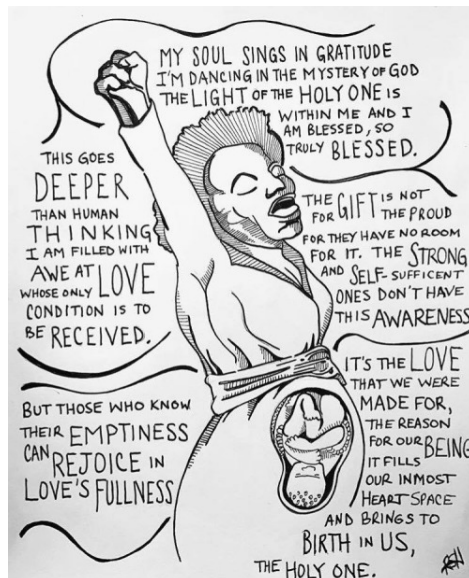 MY SOUL SINGS IN GRATITUDE
I'M DANCING IN THE MYSTERY OF GOD
THE LIGHT OF THE HOLY ONE IS
WITHIN ME AND I
AM BLESSED, SO
TRULY BLESSED.
THIS GOES
DEEPER
THAN HUMAN
THINKING
I AM FILLED WITH
AWE AT
WHOSE ONLY LOVE
CONDITION IS TO
BE RECEIVED.
THE GIFT IS NOT
FOR THE PROUD
FOR THEY HAVE NO ROOM
FOR IT. THE STRONG
AND SELF-SUFFICENT
ONES DON'T HAVE
THIS AWARENESS
BUT THOSE WHO KNOW
THEIR EMPTINESS
CAN REJOICE IN
LOVE'S FULLNESS
IT'S THE LOVE
THAT WE WERE
MADE FOR,
THE REASON
FOR OUR BEING
IT FILLS
OUR INMOST
HEART SPACE
AND BRINGS TO
BIRTH IN US,
THE HOLY ONE.